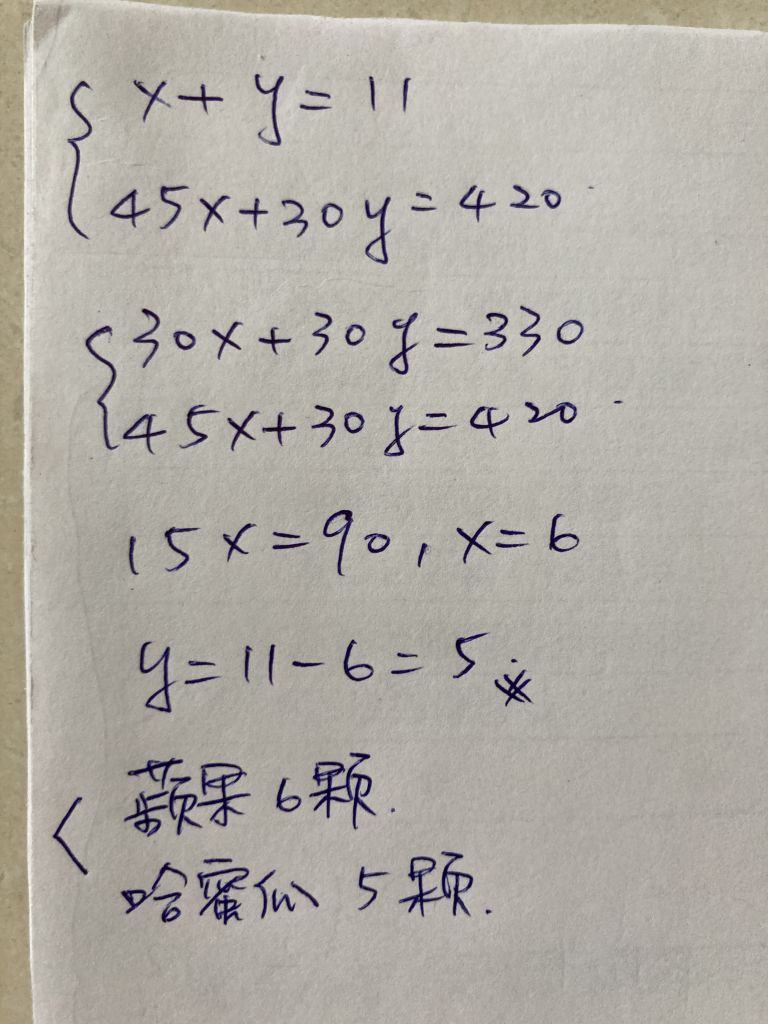 x+y=11
45x+30y=420
30x+30y=330
45x+30y=420
15x=90, x=6
y=11-6=5
蘋果 6顆.
哈蜜瓜 5顆.